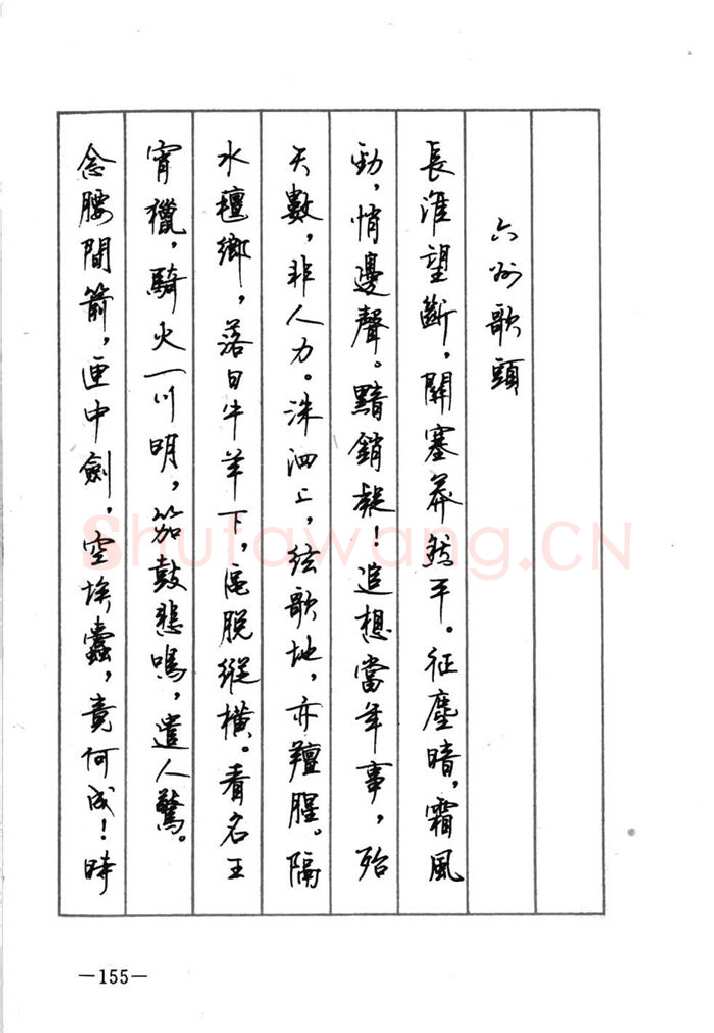 六州歌頭
長淮望斷，關塞莽然平。征塵暗，霜風
勁，悄邊聲。黯銷凝！追想當年事，殆
天數，非人力。洙泗上，絃歌地，亦羶腥。隔
水氊鄉，落日牛羊下，區脫縱橫。看名王
宵獵，騎火一川明，笳鼓悲鳴，遣人驚。
念腰間箭，匣中劍，空埃蠹，竟何成！時
—155—
Shufawang.CN